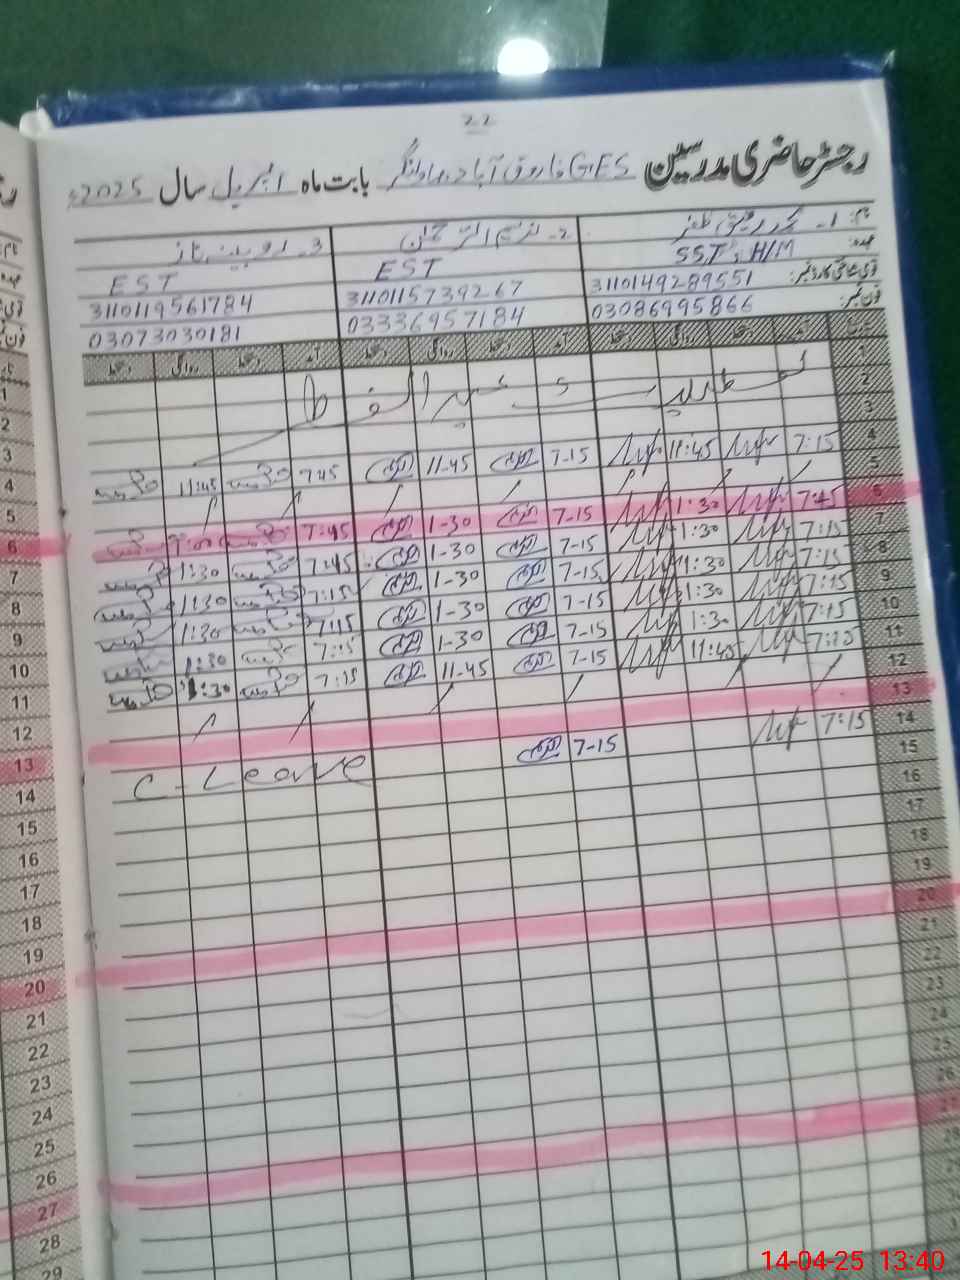 22
رجسٹر حاضری مدرسین GES فاروق آباد بہاولنگر بابت ماہ اپریل سال 2025ء
نام: 1۔ محمد رفیق ظفر 2۔ 3۔ روبینہ ناز
عہدہ: SST, H/M EST EST
قومی شناختی کارڈ نمبر: 3110149289551 3110115739267 3110119561784
فون نمبر: 03086995866 03336957184 03073030181
آمد دستخط روانگی دستخط آمد دستخط روانگی دستخط آمد دستخط روانگی دستخط
1
2 تعطیلات عید الفطر
3
4 7:15 11:45 7-15 11-45 7:45 11:45
5
6 7:45 1:30 7-15 1-30 7:45
7 7:15 1:30 7-15 1-30 7:45 1:30
8 7:15 1:30 7-15 1-30 7:15 1:30
9 7:15 1:30 7-15 1-30 7:15 1:30
10 7:15 1:30 7-15 1-30 7:15 1:30
11 11:45 7-15 11-45 7:15 1:30
12
13
14 7:15 7-15 C-Leave
15
16
17
18
19
20
21
22
23
24
25
26
27
28
29
14-04-25 13:40